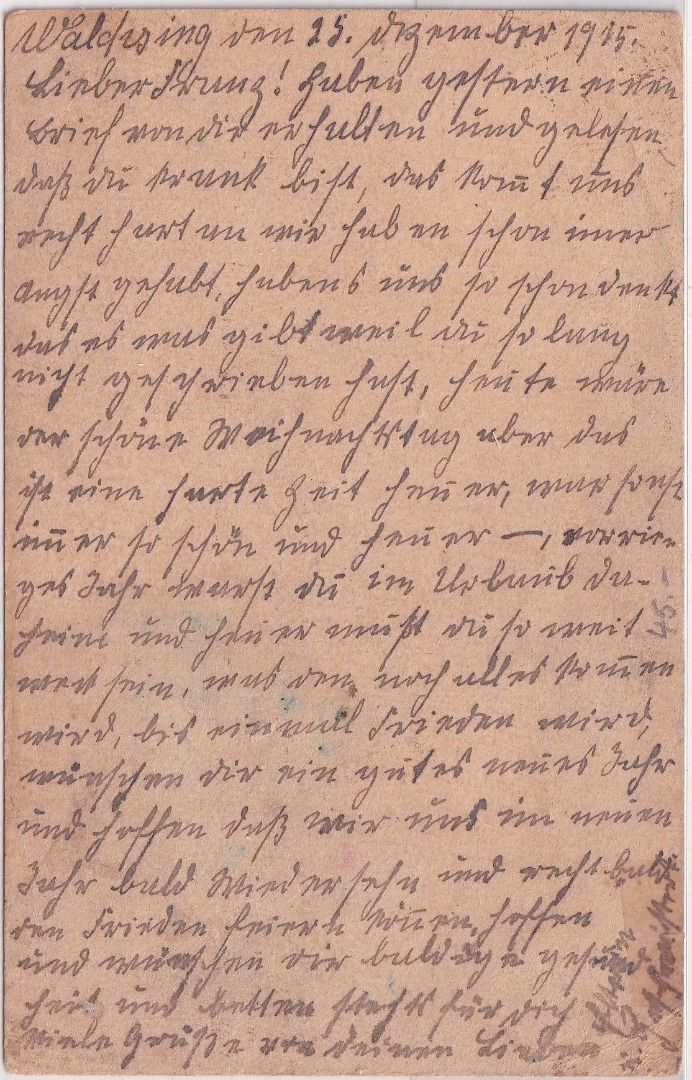 Waldzing den 25. Dezember 1915.
Lieber Franz! Haben gestern einen
Brief von dir erhalten und gelesen
daß du krank bist, das komt uns
recht hart an wir haben schon imer
angst gehabt, habens uns so schon denkt
das es was gibt weil du so lang
nicht geschrieben hast, heute wäre
der schöne Weihnachtstag aber das
ist eine harte Zeit heuer, war sonst
immer so schön und heuer —, vorrie-
ges Jahr warst du im Urlaub da-
heim und heuer mußt du so weit
weck sein, was den noch alles kommen
wird, bis einmal Frieden wird,
wünschen dir ein gutes neues Jahr
und hoffen daß wir uns im neuen
Jahr bald Wiedersehn und recht bald
den Frieden feiern können, hoffen
und wünschen dir baldige gesund
heit und betten stehts für dich
Viele Grüße von deinen Lieben
45.-